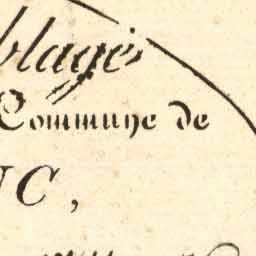 blagés
Commune de
UC,